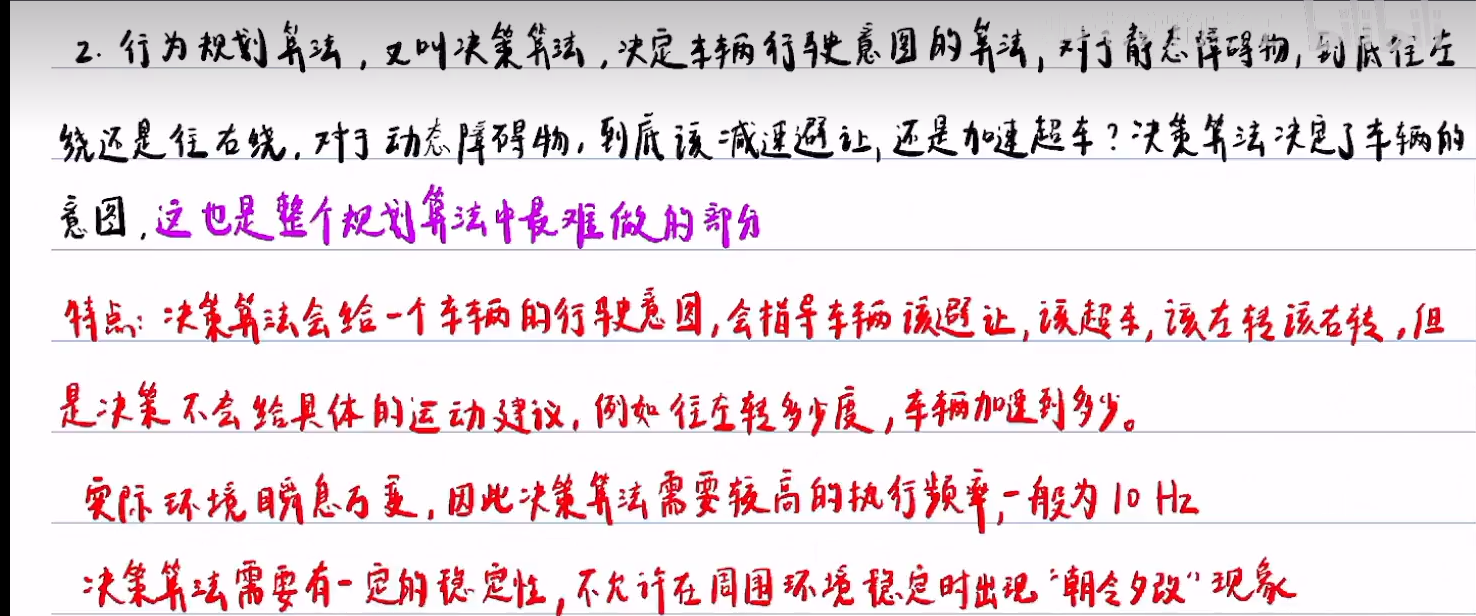 2. 行为规划算法，又叫决策算法，决定车辆行驶意图的算法，对于静态障碍物，到底往左
绕还是往右绕，对于动态障碍物，到底该减速避让，还是加速超车？决策算法决定了车辆的
意图，这也是整个规划算法中最难做的部分
特点：决策算法会给一个车辆的行驶意图，会指导车辆该避让，该超车，该左转该右转，但
是决策不会给具体的运动建议，例如往左转多少度，车辆加速到多少。
实际环境瞬息万变，因此决策算法需要较高的执行频率，一般为10 Hz
决策算法需要有一定的稳定性，不允许在周围环境稳定时出现“朝令夕改”现象